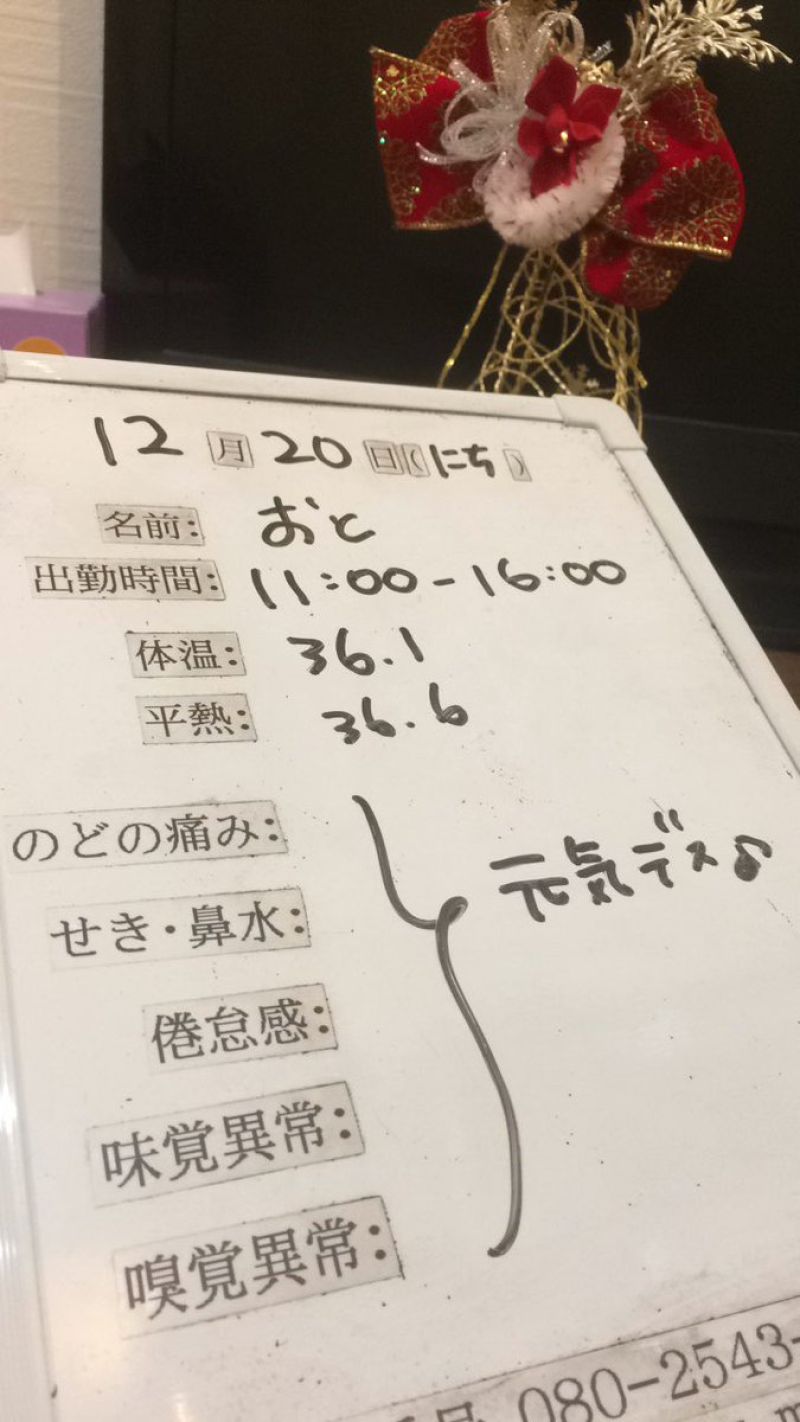 12月20日(にち)
名前: おと
出勤時間: 11:00-16:00
体温: 36.1
平熱: 36.6
のどの痛み:
せき・鼻水:
元気デス♪
倦怠感:
味覚異常:
嗅覚異常:
号 080-2543-